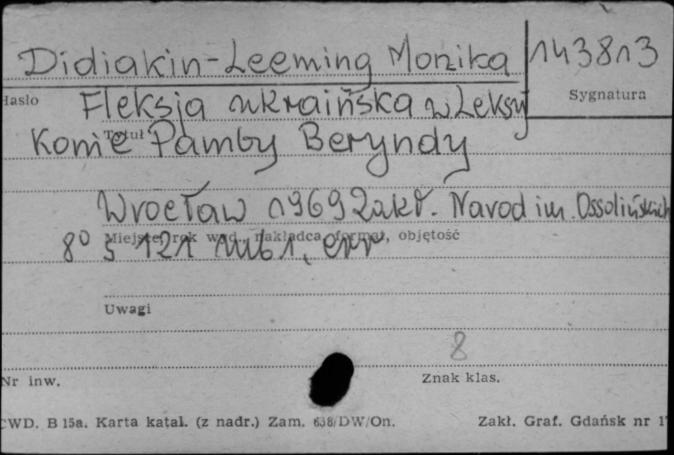 Didiakin-Leeming Monika 143813
Hasło Fleksja ukraińska w Leksy Sygnatura
Tytuł
Konie Pamby Beryndy
Wrocław 1969 Zakł. Narod im. Ossolińskich
Miejsce, rok wyd., nakładca, format, objętość
8° s 121 nlb 1, err
Uwagi
8
Nr inw. Znak klas.
CWD. B 15a. Karta katal. (z nadr.) Zam. 638/DW/On. Zakł. Graf. Gdańsk nr 1